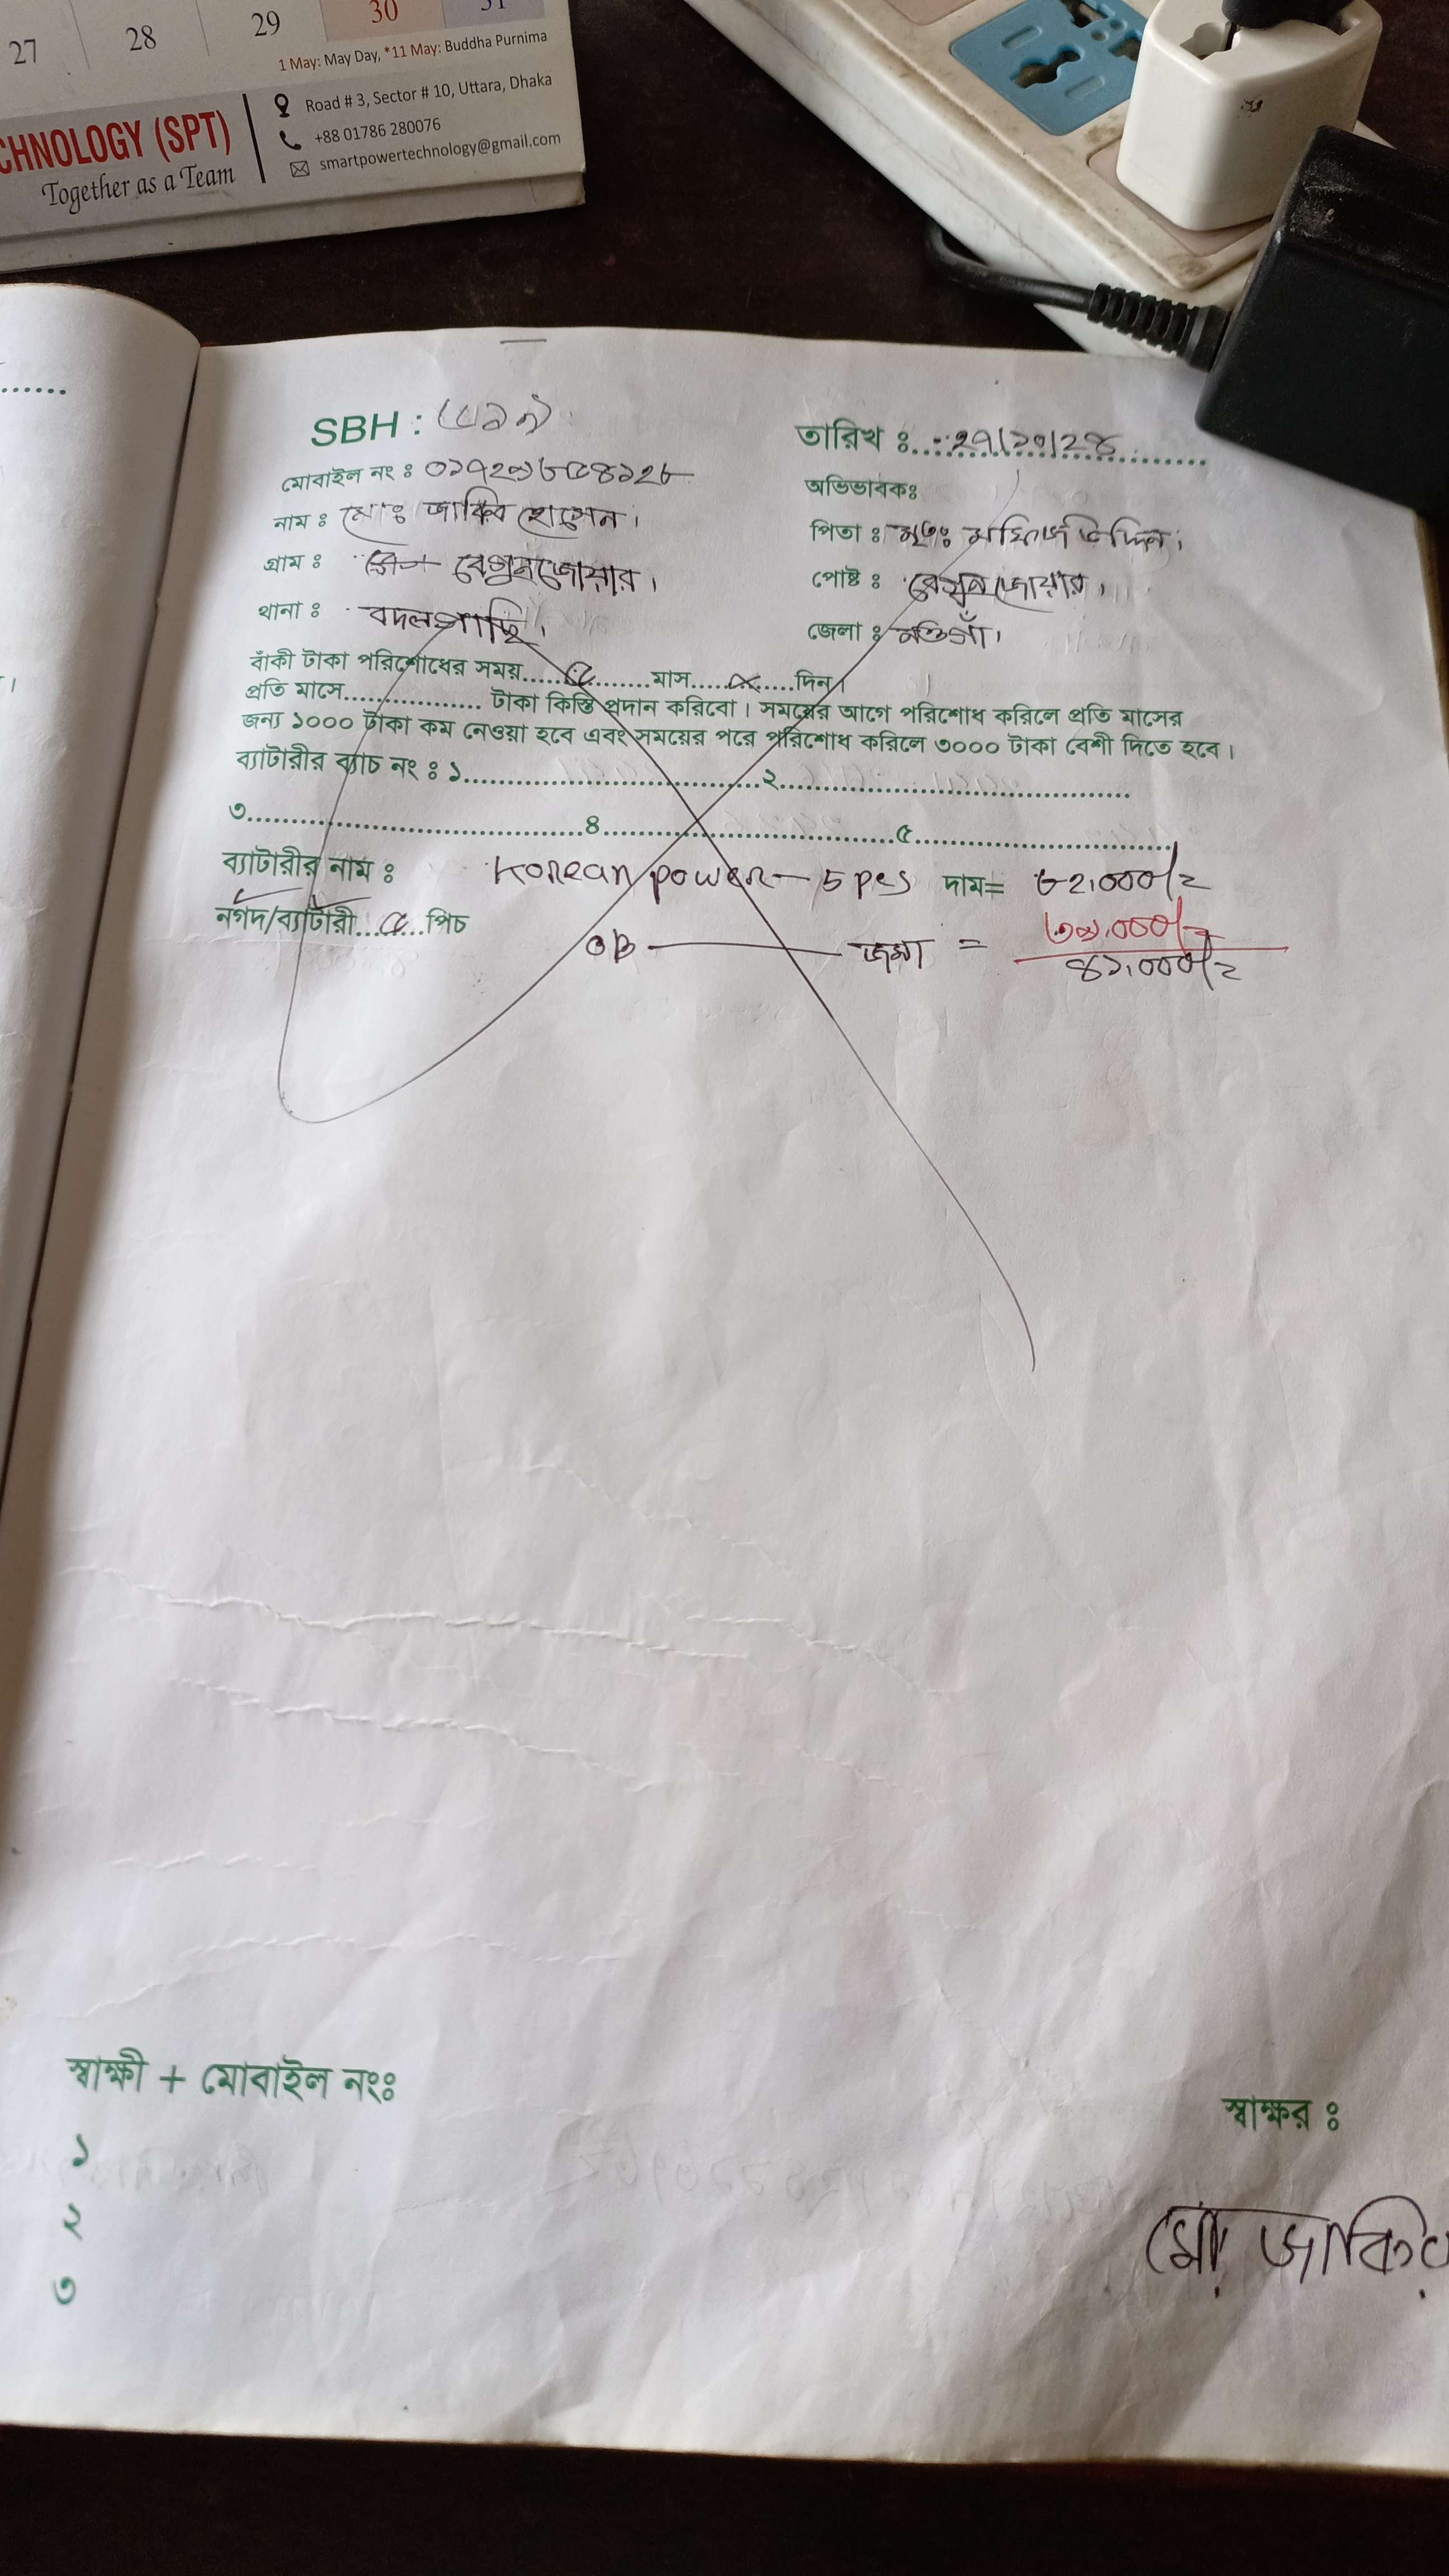 27 28 29 30 31
1 May: May Day, *11 May: Buddha Purnima
CHNOLOGY (SPT)
Together as a Team
Road # 3, Sector # 10, Uttara, Dhaka
+88 01786 280076
smartpowertechnology@gmail.com
SBH :
তারিখ ঃ
মোবাইল নং ঃ
অভিভাবকঃ
নাম ঃ মোঃ জাকির হোসেন।
পিতা ঃ মৃতঃ মফিজ উদ্দিন।
গ্রাম ঃ বেগুনজোয়ার।
পোষ্ট ঃ বেগুনজোয়ার।
থানা ঃ বদলগাছি।
জেলা ঃ নওগাঁ।
বাঁকী টাকা পরিশোধের সময়......৫.........মাস.....×.....দিন।
প্রতি মাসে................. টাকা কিস্তি প্রদান করিবো। সময়ের আগে পরিশোধ করিলে প্রতি মাসের
জন্য ১০০০ টাকা কম নেওয়া হবে এবং সময়ের পরে পরিশোধ করিলে ৩০০০ টাকা বেশী দিতে হবে।
ব্যাটারীর ব্যাচ নং ঃ ১....................................২............................................
৩..........................................৪......................................৫................................
ব্যাটারীর নাম ঃ Korean power — 5 pcs দাম= ৮২,০০০/=
নগদ/ব্যাটারী...৫...পিচ
OB — জমা =
৪১,০০০/=
স্বাক্ষী + মোবাইল নংঃ
স্বাক্ষর ঃ
১
২
৩
মোঃ জাকির